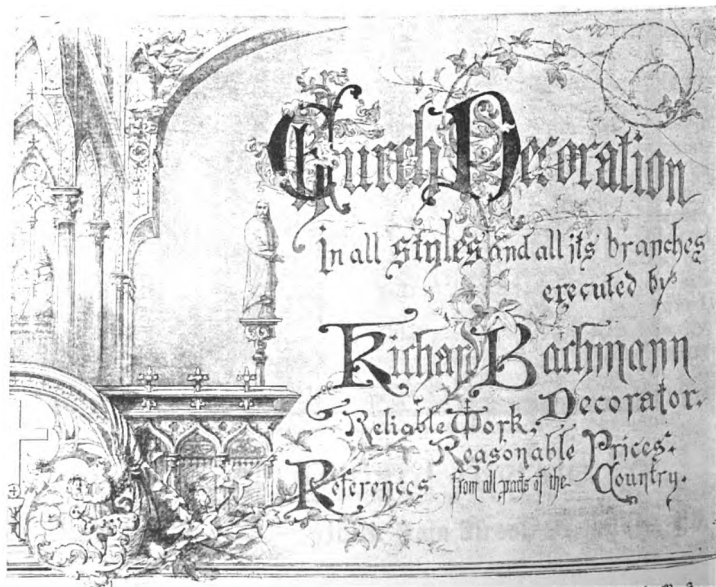 Church Decoration
in all styles and all its branches
executed by
Richard Bachmann
Decorator.
Reliable Work.
Reasonable Prices.
References from all parts of the Country.